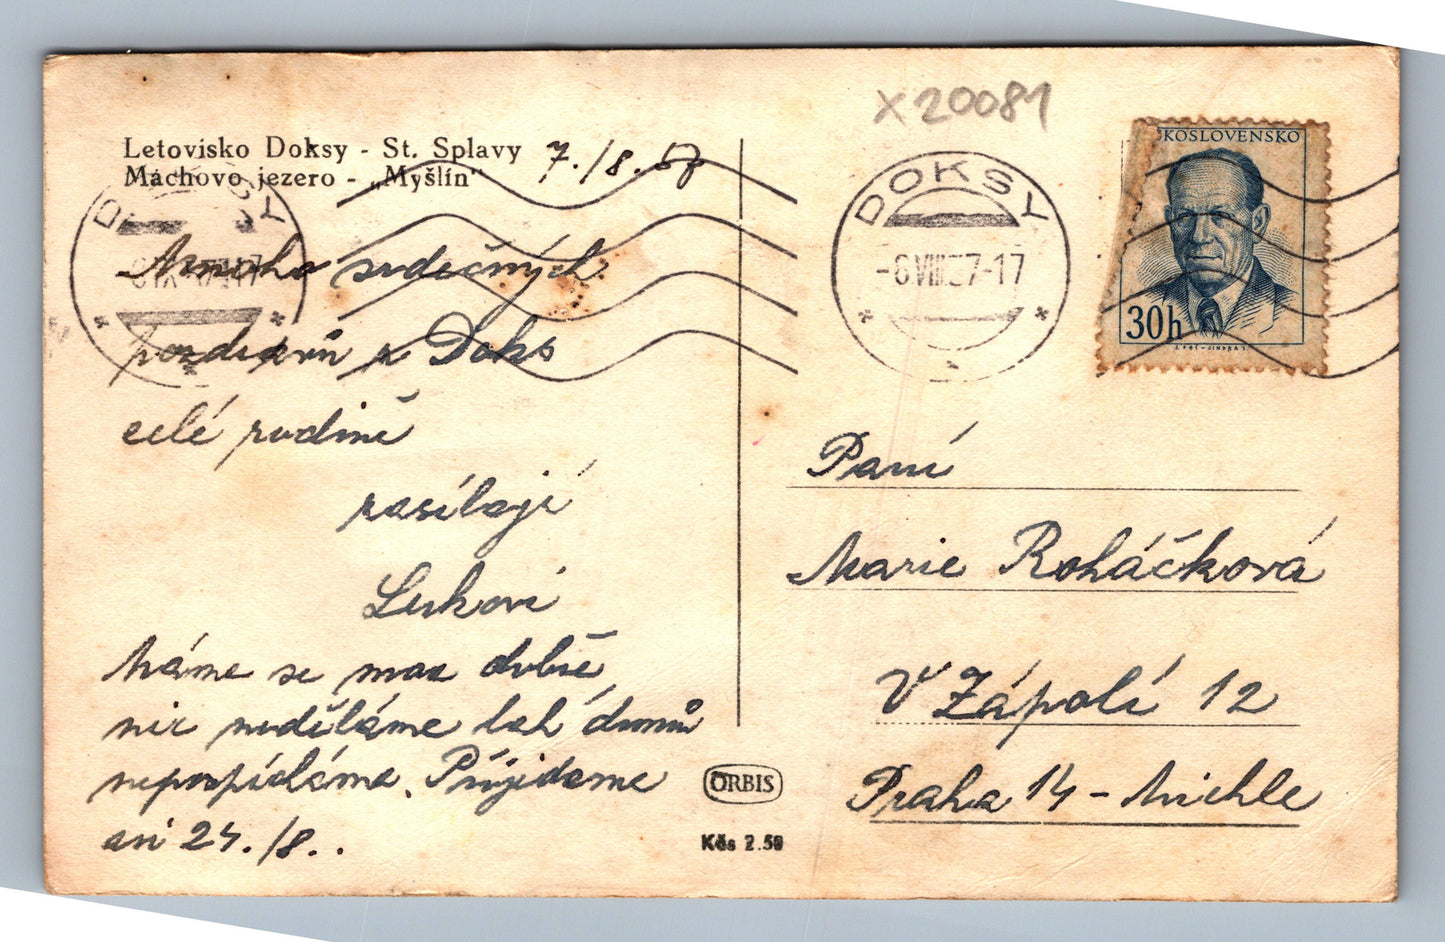 X20081
Letovisko Doksy - St. Splavy
Máchovo jezero - „Myšlín"
7./8. 57
DOKSY
-6.VIII.57-17
KOSLOVENSKO
30h
Mnoho srdečných
pozdravů z Doks
celé rodině
zasílají
Lukovi
Máme se moc dobře
nic neděláme tak domů
nepospícháme. Přijedeme
asi 24./8..
Paní
Marie Roháčková
V Zápolí 12
Praha 14 - Michle
ORBIS
Kčs 2.50